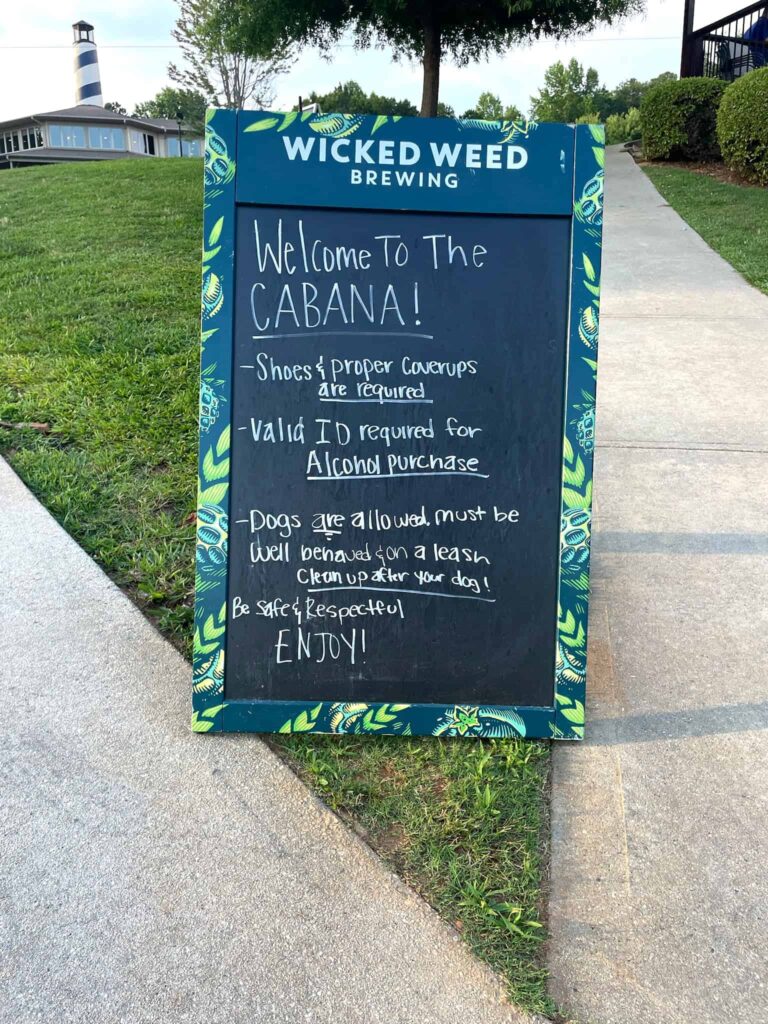 WICKED WEED
BREWING
Welcome To The
CABANA!
-Shoes & Proper Coverups
are required
-Valid ID required for
Alcohol purchase
-Dogs are allowed, must be
well behaved & on a leash
Clean up after your dog!
Be Safe & Respectful
ENJOY!